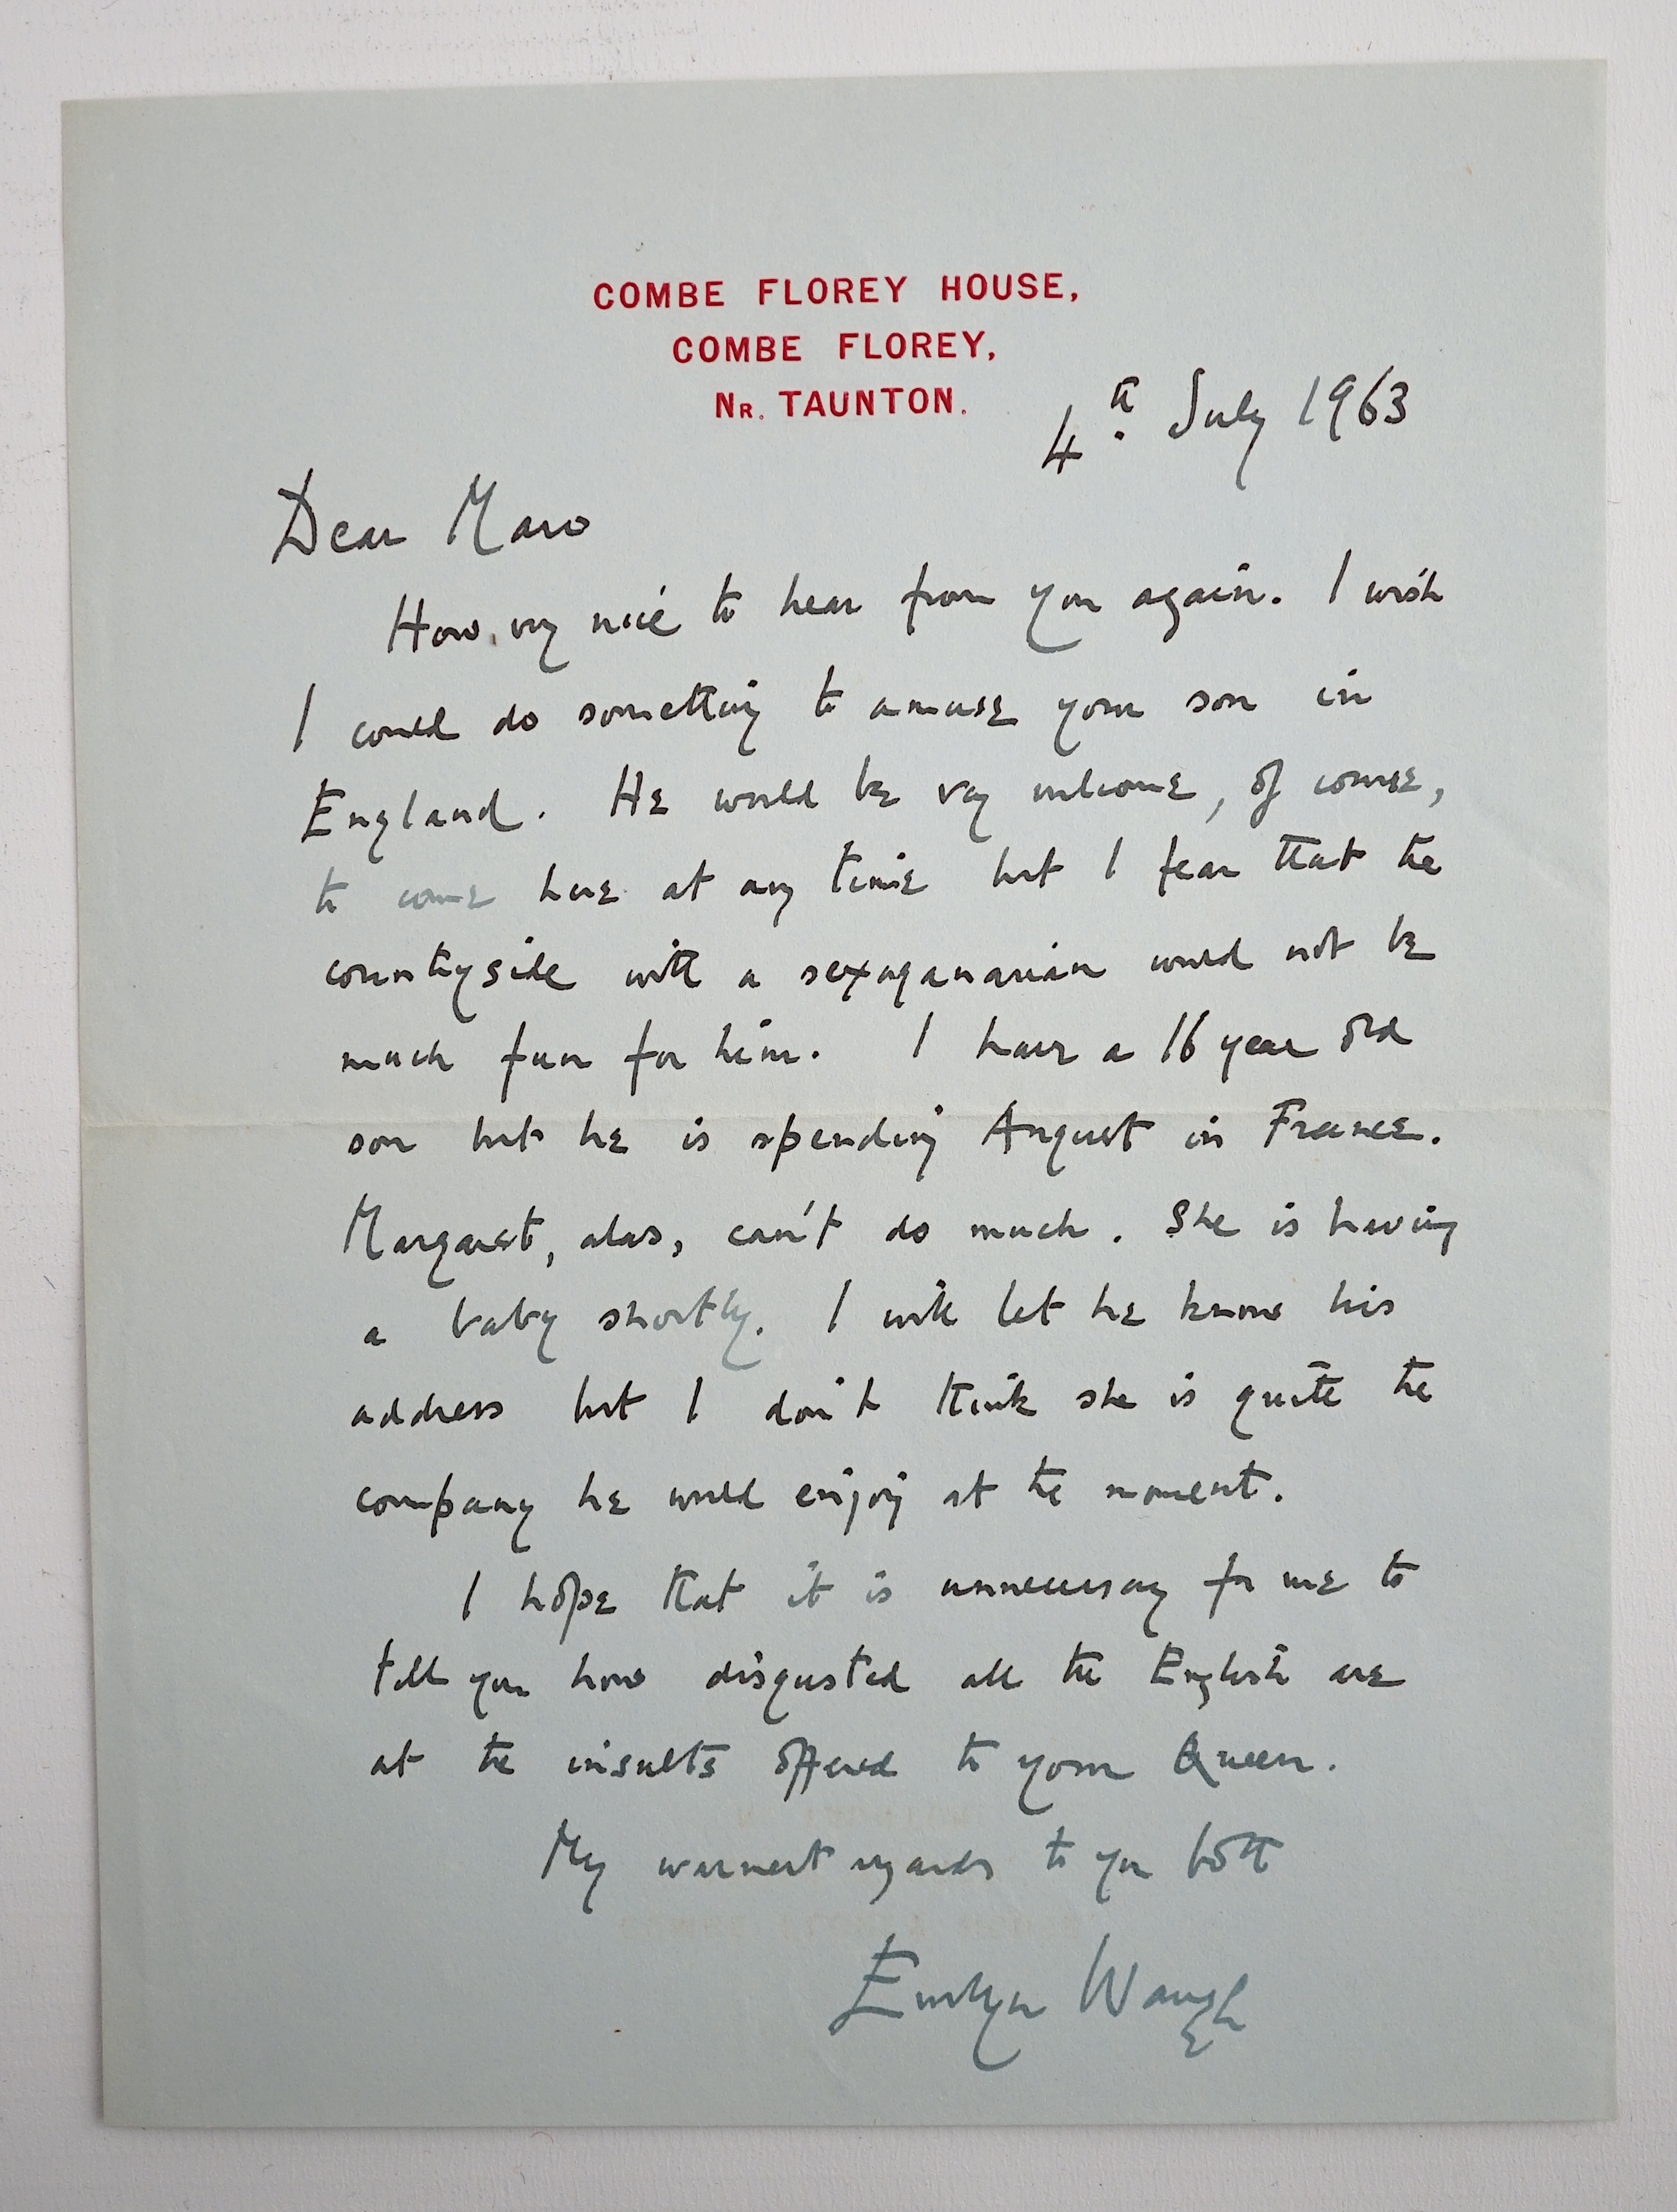 COMBE FLOREY HOUSE,
COMBE FLOREY,
NR. TAUNTON.
4th July 1963
Dear Maro
How very nice to hear from you again. I wish
I could do something to amuse your son in
England. He would be very welcome, of course,
to come here at any time but I fear that the
countryside with a sexaganarian would not be
much fun for him. I have a 16 year old
son but he is spending August in France.
Margaret, alas, can't do much. She is having
a baby shortly. I will let he know his
address but I don't think she is quite the
company he would enjoy at the moment.
I hope that it is unnecessary for me to
tell you how disgusted all the English are
at the insults offered to your Queen.
My warmest regards to you both
Evelyn Waugh